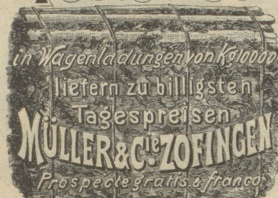 in Wagenladungen von Kg10000
liefern zu billigsten
Tagespreisen
MÜLLER & Cie ZOFINGEN
Prospecte gratis & franco